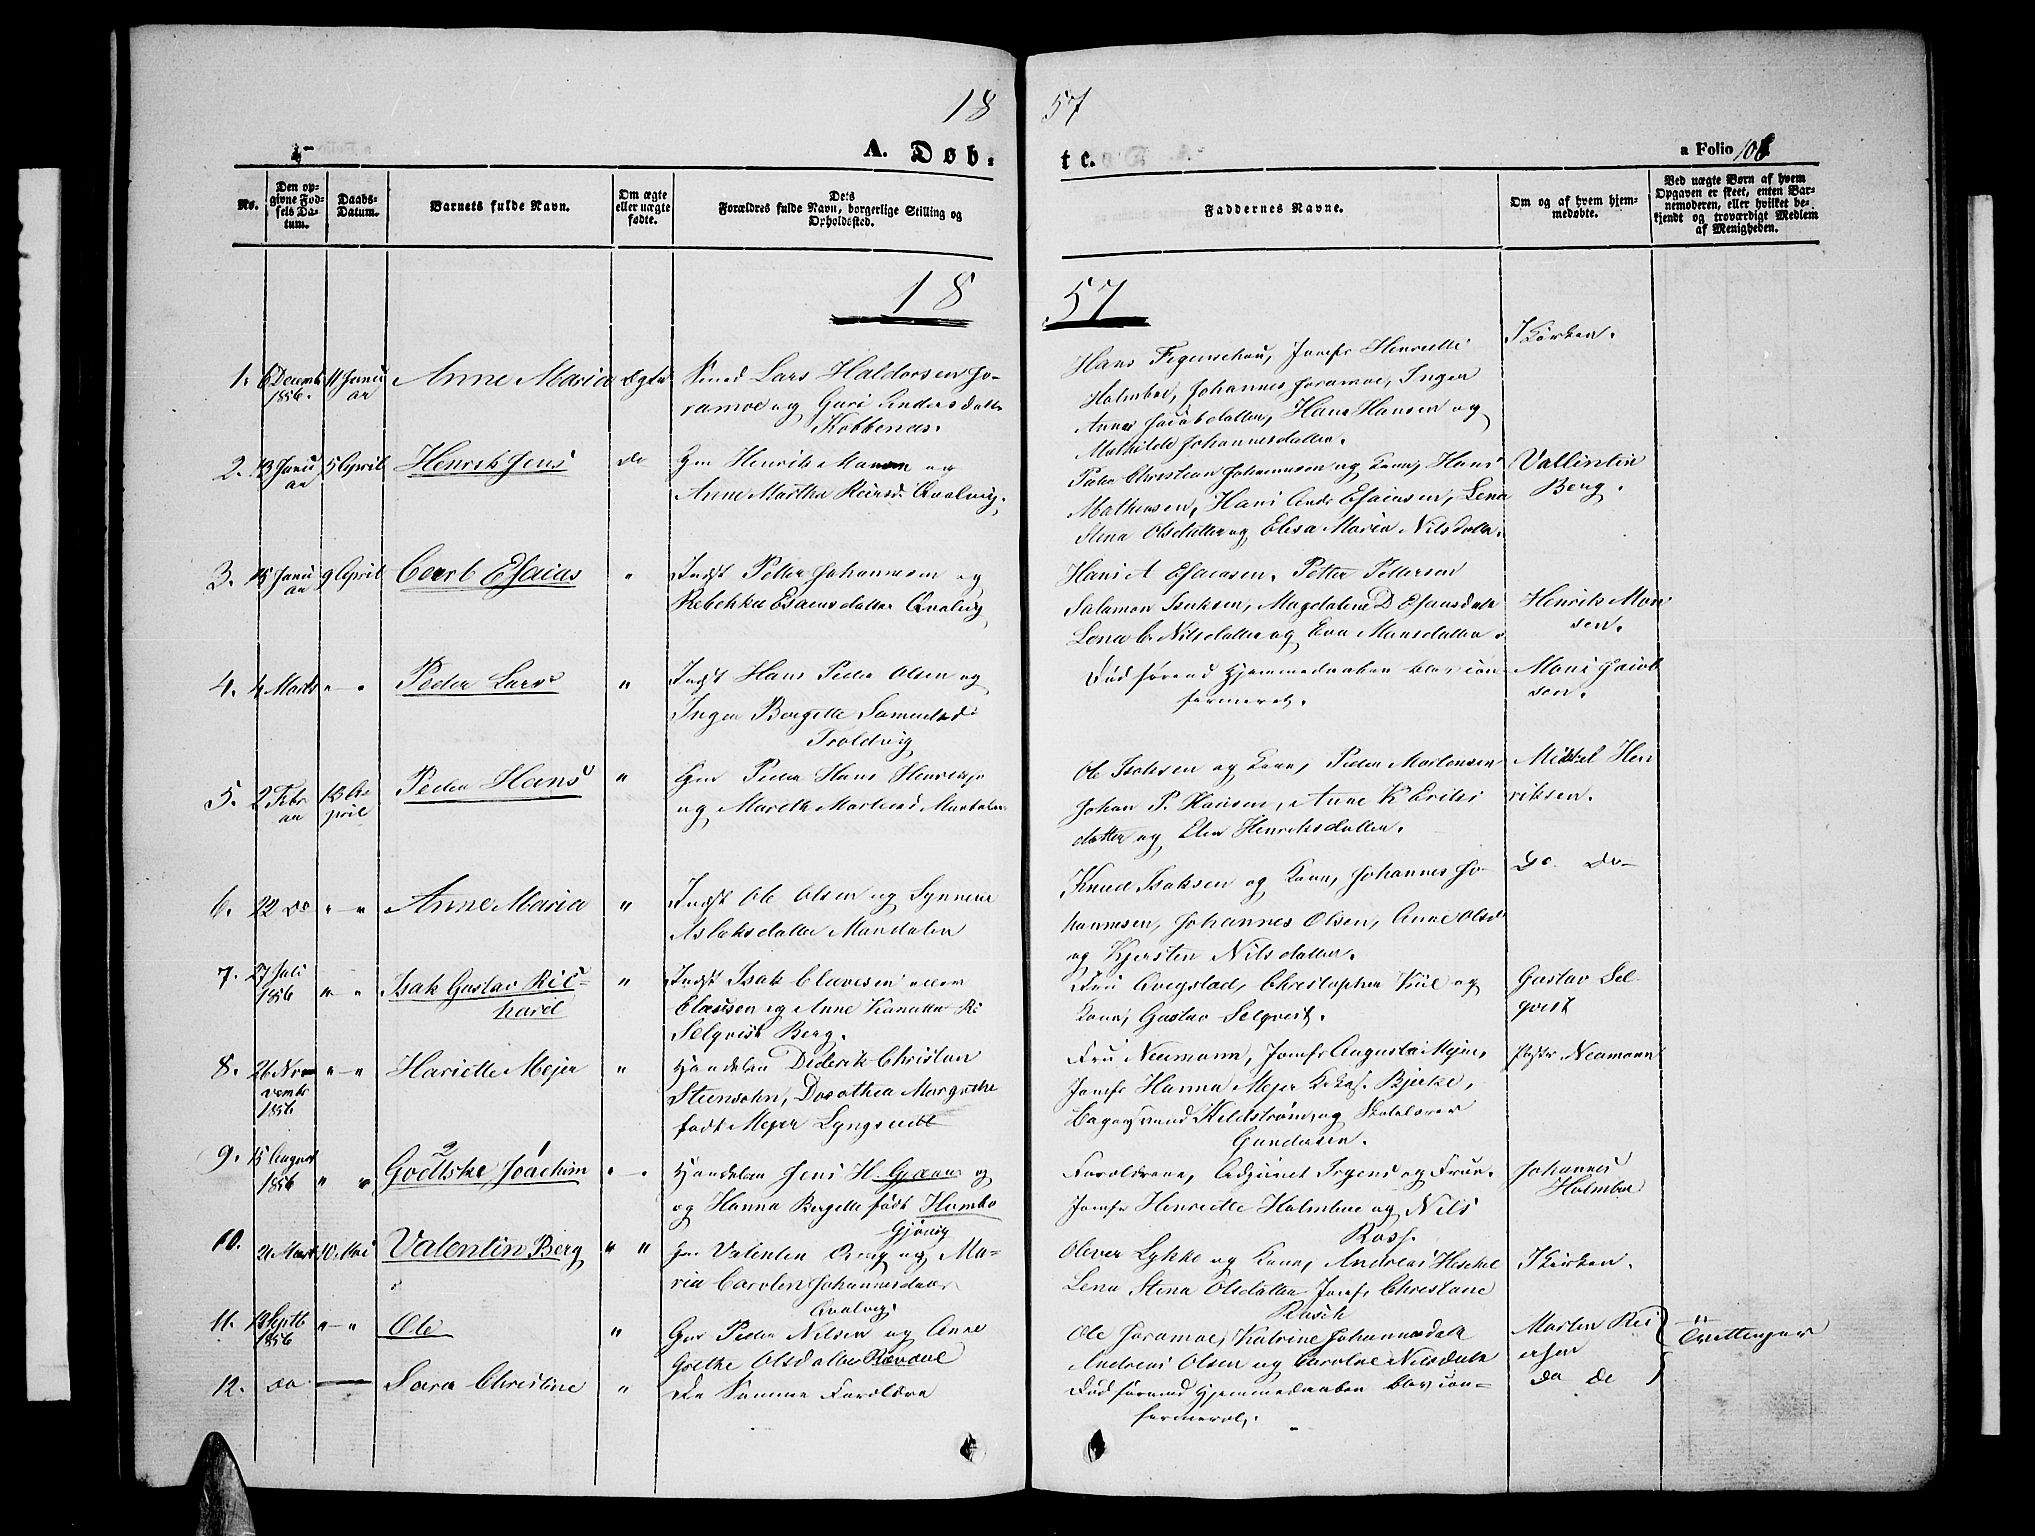 18 57
A. Døb- te.
a Folio 106
No.
Den op-
givne Fød-
sels Da-
tum.
Daabs-
Datum.
Barnets fulde Navn.
Om ægte
eller uægte
fødte.
Dets
Forældres fulde Navn, borgerlige Stilling og
Opholdssted.
Faddernes Navne.
Om og af hvem hjem-
medøbte.
Ved uægte Børn af hvem
Opgaven er skeet, enten Bar-
nemoderen, eller hvilket be-
kjendt og troværdigt Medlem
af Menigheden.
18 57
1. 6 Decemb 11 Janu Anne Maria Ægte Lars Haldorsen Jo-
1856. ar
ramoe og Guri Andersdatter
Kobbenes.
Hans Figenschou, Jomfr Henriette
Holmboe, Johannes Joramoe, Inger
Anne Jacobsdatter, Hans Hansen og
Mathilde Johannesdatter.
I Kirken.
2. 13 Janu 5 April Henrik Jens do Henrik Monsen og
ar
Anne Martha Qvalvig.
Peter Christian Johannesen og Kone, Hans
Mathisen, Hans Andr Esaiasen, Lena
Stena Olsdatter og Elisa Maria Nilsdatter.
Vallintin
Berg.
3. 15 Janu 9 April Carl Esaias " Indst Petter Johannesen og
ar
Rebekka Esaiasdatter Qvalvig
Hans A Esaiasen, Petter Pettersen
Salamon Isaksen, Magdalene D Esaiasdatt
Lena C. Nilsdatter og Eva Monsdatter.
Henrik Mon
sen.
4. 4 Marts " - " Peder Lars " Indst Hans Peder Olsen og
Inger Bergitte Samuelsd:
Troldvig
Død førend Hjemmedaaben blev con-
fermeret.
Mons Jacob
sen.
5. 2 Febr 13 A- Peder Hans " Peder Hans
ar pril
og Marethe
Ole Isaksen og Kone, Peder Mortensen
Johan P. Hansen, Anne K Eriks
datter og Elen Henriksdatter.
Mikkel Hen
riksen.
6. 22 do " - " Anne Maria " Indst Ole Olsen og Synnene
Aslaksdatter Mandalen
Knud Isaksen og Kone, Johannes Jo-
hannesen, Johannes Olsen, Anne Olsd
og Kjersten Nilsdatter.
do do
7. 27 Juli " - " Isak Gustav Ric- " Indst Isak Clavesen eller
1856 hard
Clausen og Anne
Selqvist Berg.
Fru Qvigstad, Christopher Kiil og
Kone, Gustav Selqvist.
Gustav Sel-
qvist
8. 26 No- " - " Hariette Mejer " Handelsm Diderik Christan
vembr
1856
Steensohn, Dorothea Margrethe
født Mejer Lyngseidet
Fru Neumann, Jomfr Augusta Mejer,
Jomfr Hanna Mejer Bjerke,
Hildstrøm, og Skolelærer
Gundersen.
Neumann
9. 15 August " " Godtske Joachim " - " Handelsm Jens H. Gjæver og
1856
og Hanna Bergitte født Hombo
Gjøvig
Forældrene, Adjunct Irgens og Frue.
Jomfr Henriette Holmboe og Nils
Rasf.
Johannes
Holmboe
10. 21 Mart 10 Mai Valentin Berg " " Valentin Berg og Ma-
ria Carolen Johannesdatter
Qvalvig.
Oliver Lykke og Kone, Andreas Heschel
Lena Stena Olsdatter Jomfr Christiane
Rasch
I Kirken.
11. 12 Septb " - " Ole " Peder Nilsen og Anne
1856
Grethe Olsdatter Rævdal
Ole Joramoe, Katrine Johannesdatt
Andreas Olsen og Caroline Nilsdatt
Morten Rei
ersen
Tvillinger
12. do Sara Christine " De Samme Forældre
Død førend Hjemmedaaben blev con-
fermeret.
do do